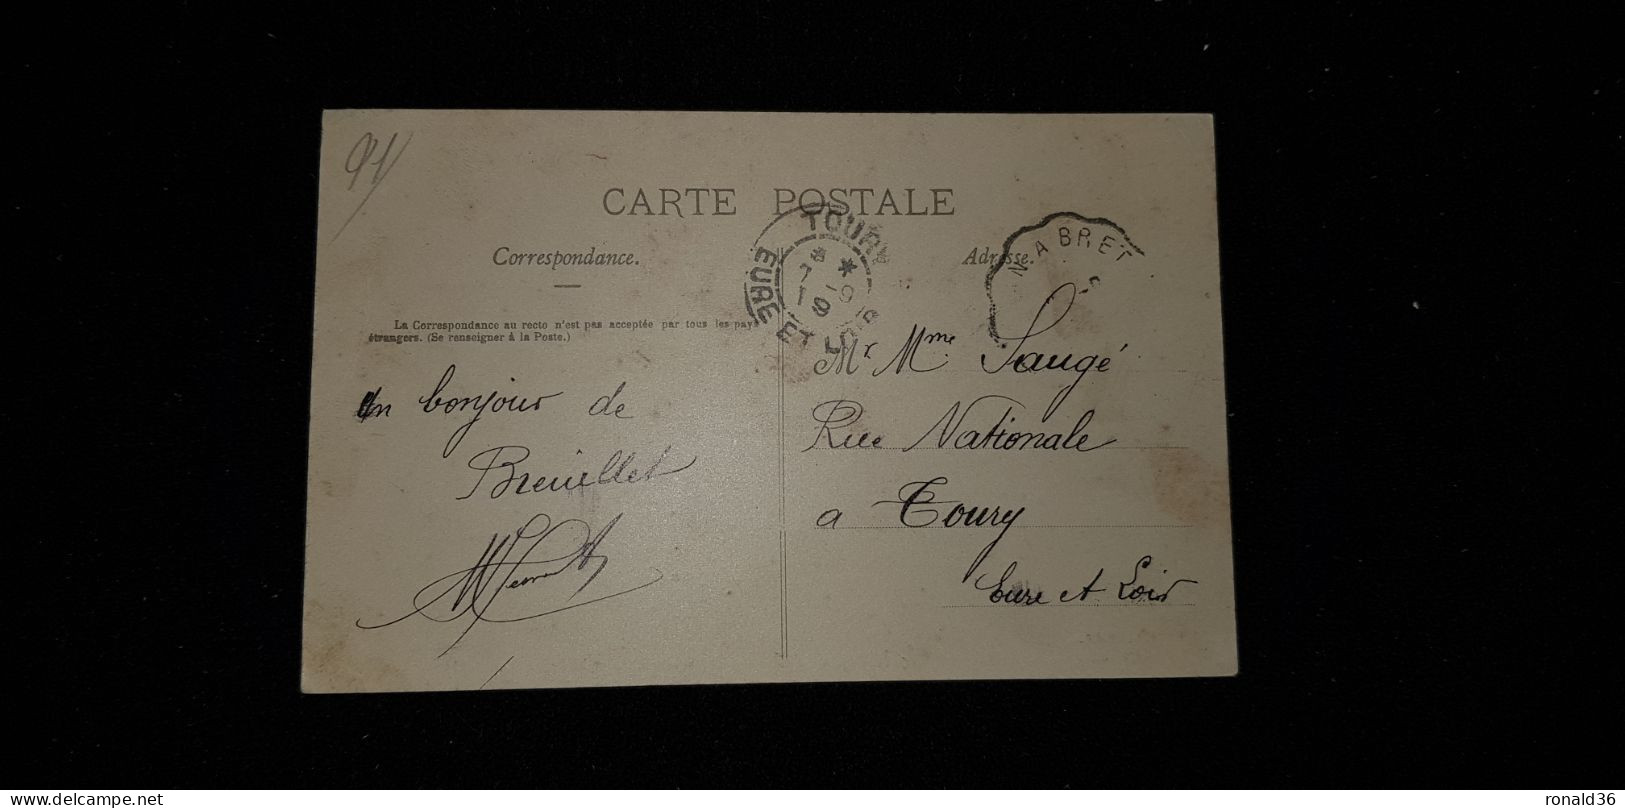 91
CARTE POSTALE
Correspondance.
Adresse.
TOURY
EURE ET LOIR
N A BRET
La Correspondance au recto n'est pas acceptée par tous les pays
étrangers. (Se renseigner à la Poste.)
un bonjour de
Breuillet
Mr Mme Saugé
Rue Nationale
a Toury
Eure et Loir
delcampe.net
ronald36